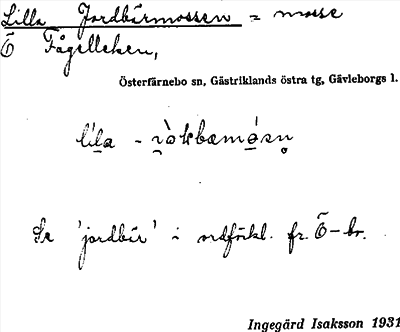 Lilla Jordbärmossen = mosse
Ö Fågelleken,
Österfärnebo sn, Gästriklands östra tg, Gävleborgs l.
Se 'jordbär' i ordförkl. fr. Ö-bo.
Ingegärd Isaksson 1931